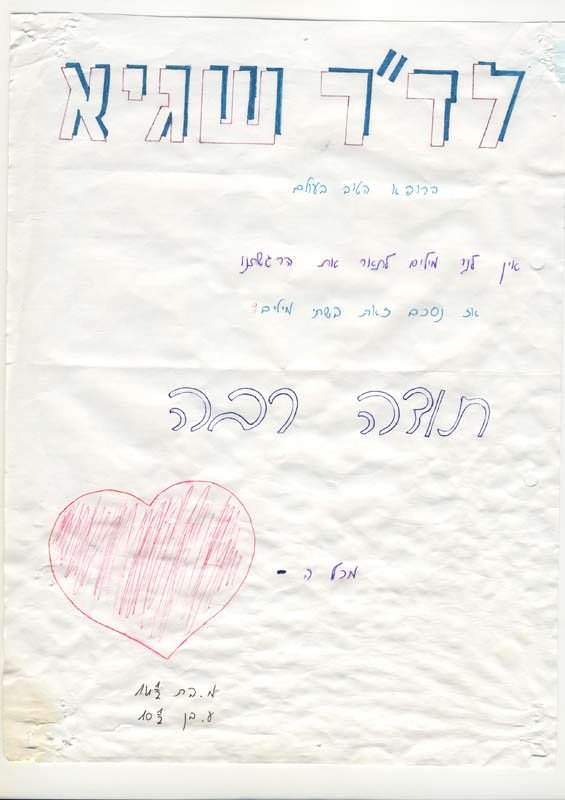 לד"ר שגיא
הרופא הטוב בעולם
אין לנו מילים לתאר את הרגשתנו
אז נסכם זאת בשתי מילים:
תודה רבה
מכל ה-
מ. בת 14½
ע. בן 10½